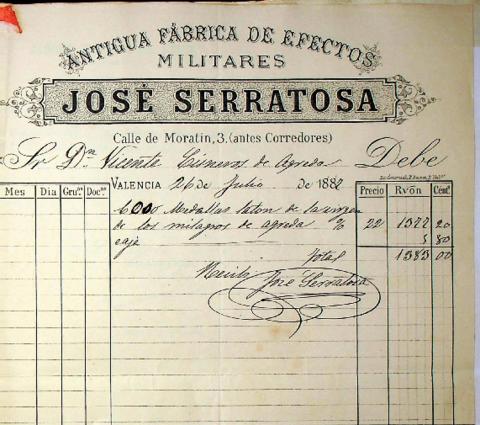 ANTIGUA FÁBRICA DE EFECTOS
MILITARES
JOSÉ SERRATOSA
Calle de Moratin, 3, (antes Corredores)
Sr Dn Vicente Cisneros de Agreda Debe
VALENCIA 26 de Julio de 1882
Mes Dia Gru.s Doc.s Precio Rvõn Cént.s
6000 Medallas laton de la virgen
de los milagros de agreda % 22 1377 20
caja 5 80
Total 1383 00
Recibi
José Serratosa